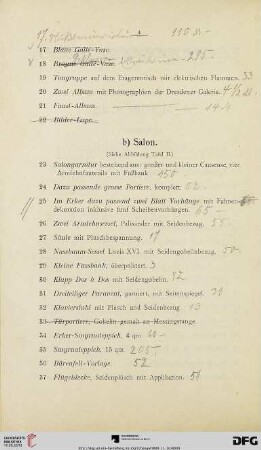 17 Blaue Gallé-Vase.
18 Braune Gallé-Vase. 205.-
19 Tongruppe auf dem Eragenentisch mit elektrischen Flammen. 33
20 Zwei Albums mit Photographien der Dresdener Galerie.
21 Faust-Album.
22 Bilder-Etagere.
b) Salon.
(Siehe Abbildung Tafel II.)
23 Salongarnitur bestehend aus: großer und kleiner Causeuse, vier
Armlehnfauteuils mit Fußbank 450.-
24 Dazu passende grosse Portiere, komplett.
25 Im Erker dazu passend zwei Blatt Vorhänge mit Fahnen-
dekoration inklusive fünf Scheibenvorhängen. 65-
26 Zwei Armlehnsessel, Palisander mit Seidenbezug. 55
27 Säule mit Plüschbespannung. 17
28 Nussbaum-Sessel Louis XVI. mit Seidengobelinbezug. 50-
29 Kleine Fussbank, überpolstert. 3
30 Klapp Dos à Dos mit Seidengobelin. 32
31 Dreiteiliger Paravent, garniert, mit Seitenspiegel.
32 Klavierstuhl mit Plüsch und Seidenbezug 13
33 Türportiere, Gobelin gemalt an Messingstange.
34 Erker-Smyrnateppich, 4 qm
35 Smyrnateppich, 15 qm 205-
36 Bärenfell-Vorlage. 52
37 Flügeldecke, Seidenplüsch mit Applikation. 51
UNIVERSITÄTS-
BIBLIOTHEK
HEIDELBERG
DFG